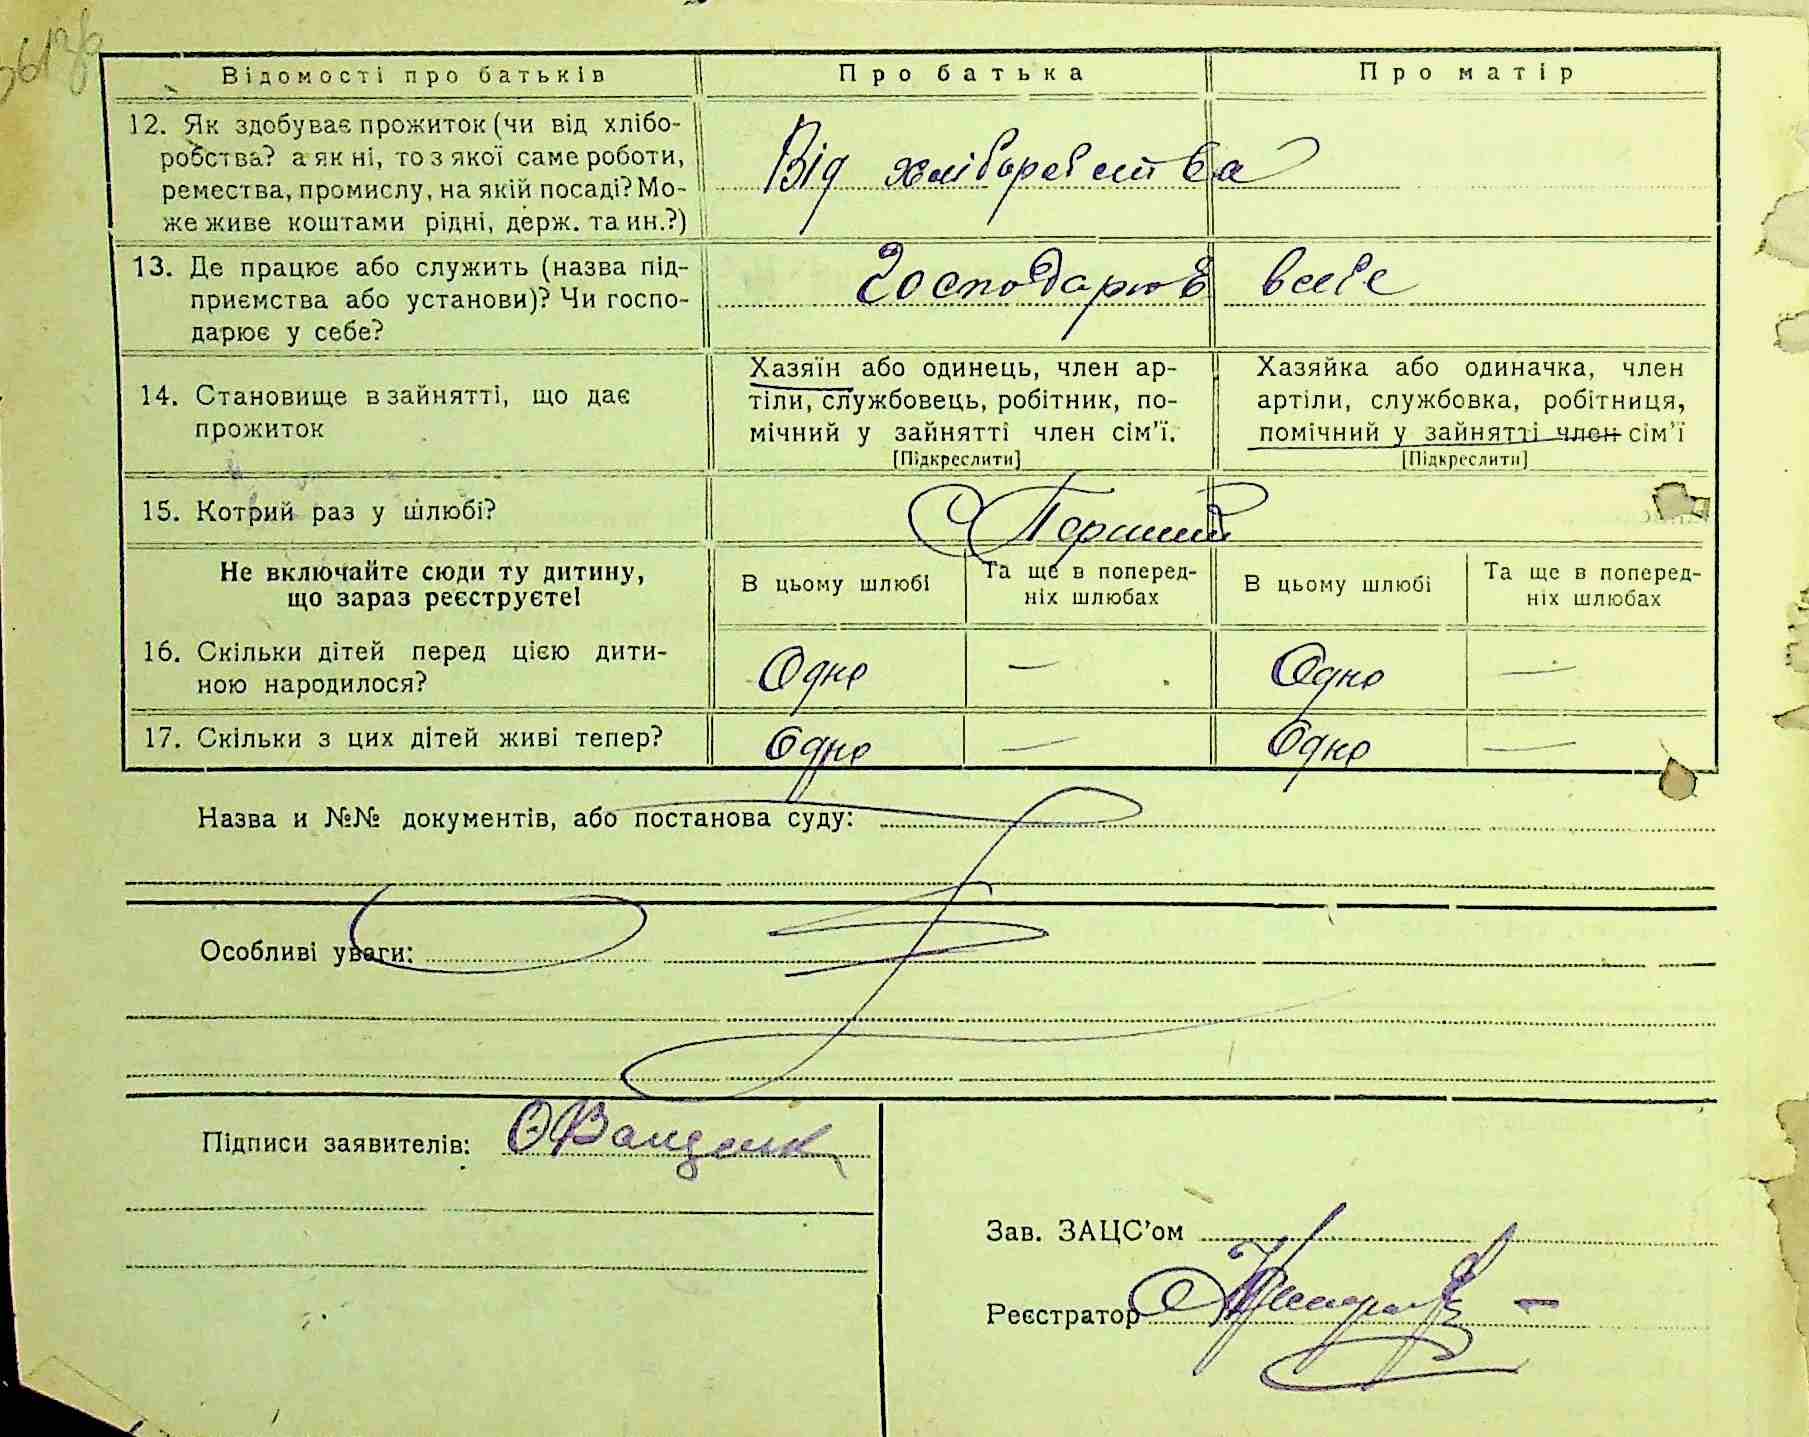 Відомості про батьків Про батька Про матір
12. Як здобуває прожиток (чи від хлібо-
робства? а як ні, то з якої саме роботи,
ремества, промислу, на якій посаді? Мо-
же живе коштами рідні, держ. та ин.?)
Від хліборобства
13. Де працює або служить (назва під-
приємства або установи)? Чи госпо-
дарює у себе?
Господарює в себе
14. Становище в зайнятті, що дає
прожиток
Хазяїн або одинець, член ар-
тіли, службовець, робітник, по-
мічний у зайнятті член сім'ї.
[Підкреслити]
Хазяйка або одиначка, член
артіли, службовка, робітниця,
помічний у зайнятті член сім'ї
[Підкреслити]
15. Котрий раз у шлюбі?
Перший
Не включайте сюди ту дитину,
що зараз реєструєте!
В цьому шлюбі
Та ще в поперед-
ніх шлюбах
В цьому шлюбі
Та ще в поперед-
ніх шлюбах
16. Скільки дітей перед цією дити-
ною народилося?
Одно — Одно —
17. Скільки з цих дітей живі тепер?
Одно — Одно —
Назва и №№ документів, або постанова суду:
Особливі уваги:
Підписи заявителів:
Зав. ЗАЦС'ом
Реєстратор